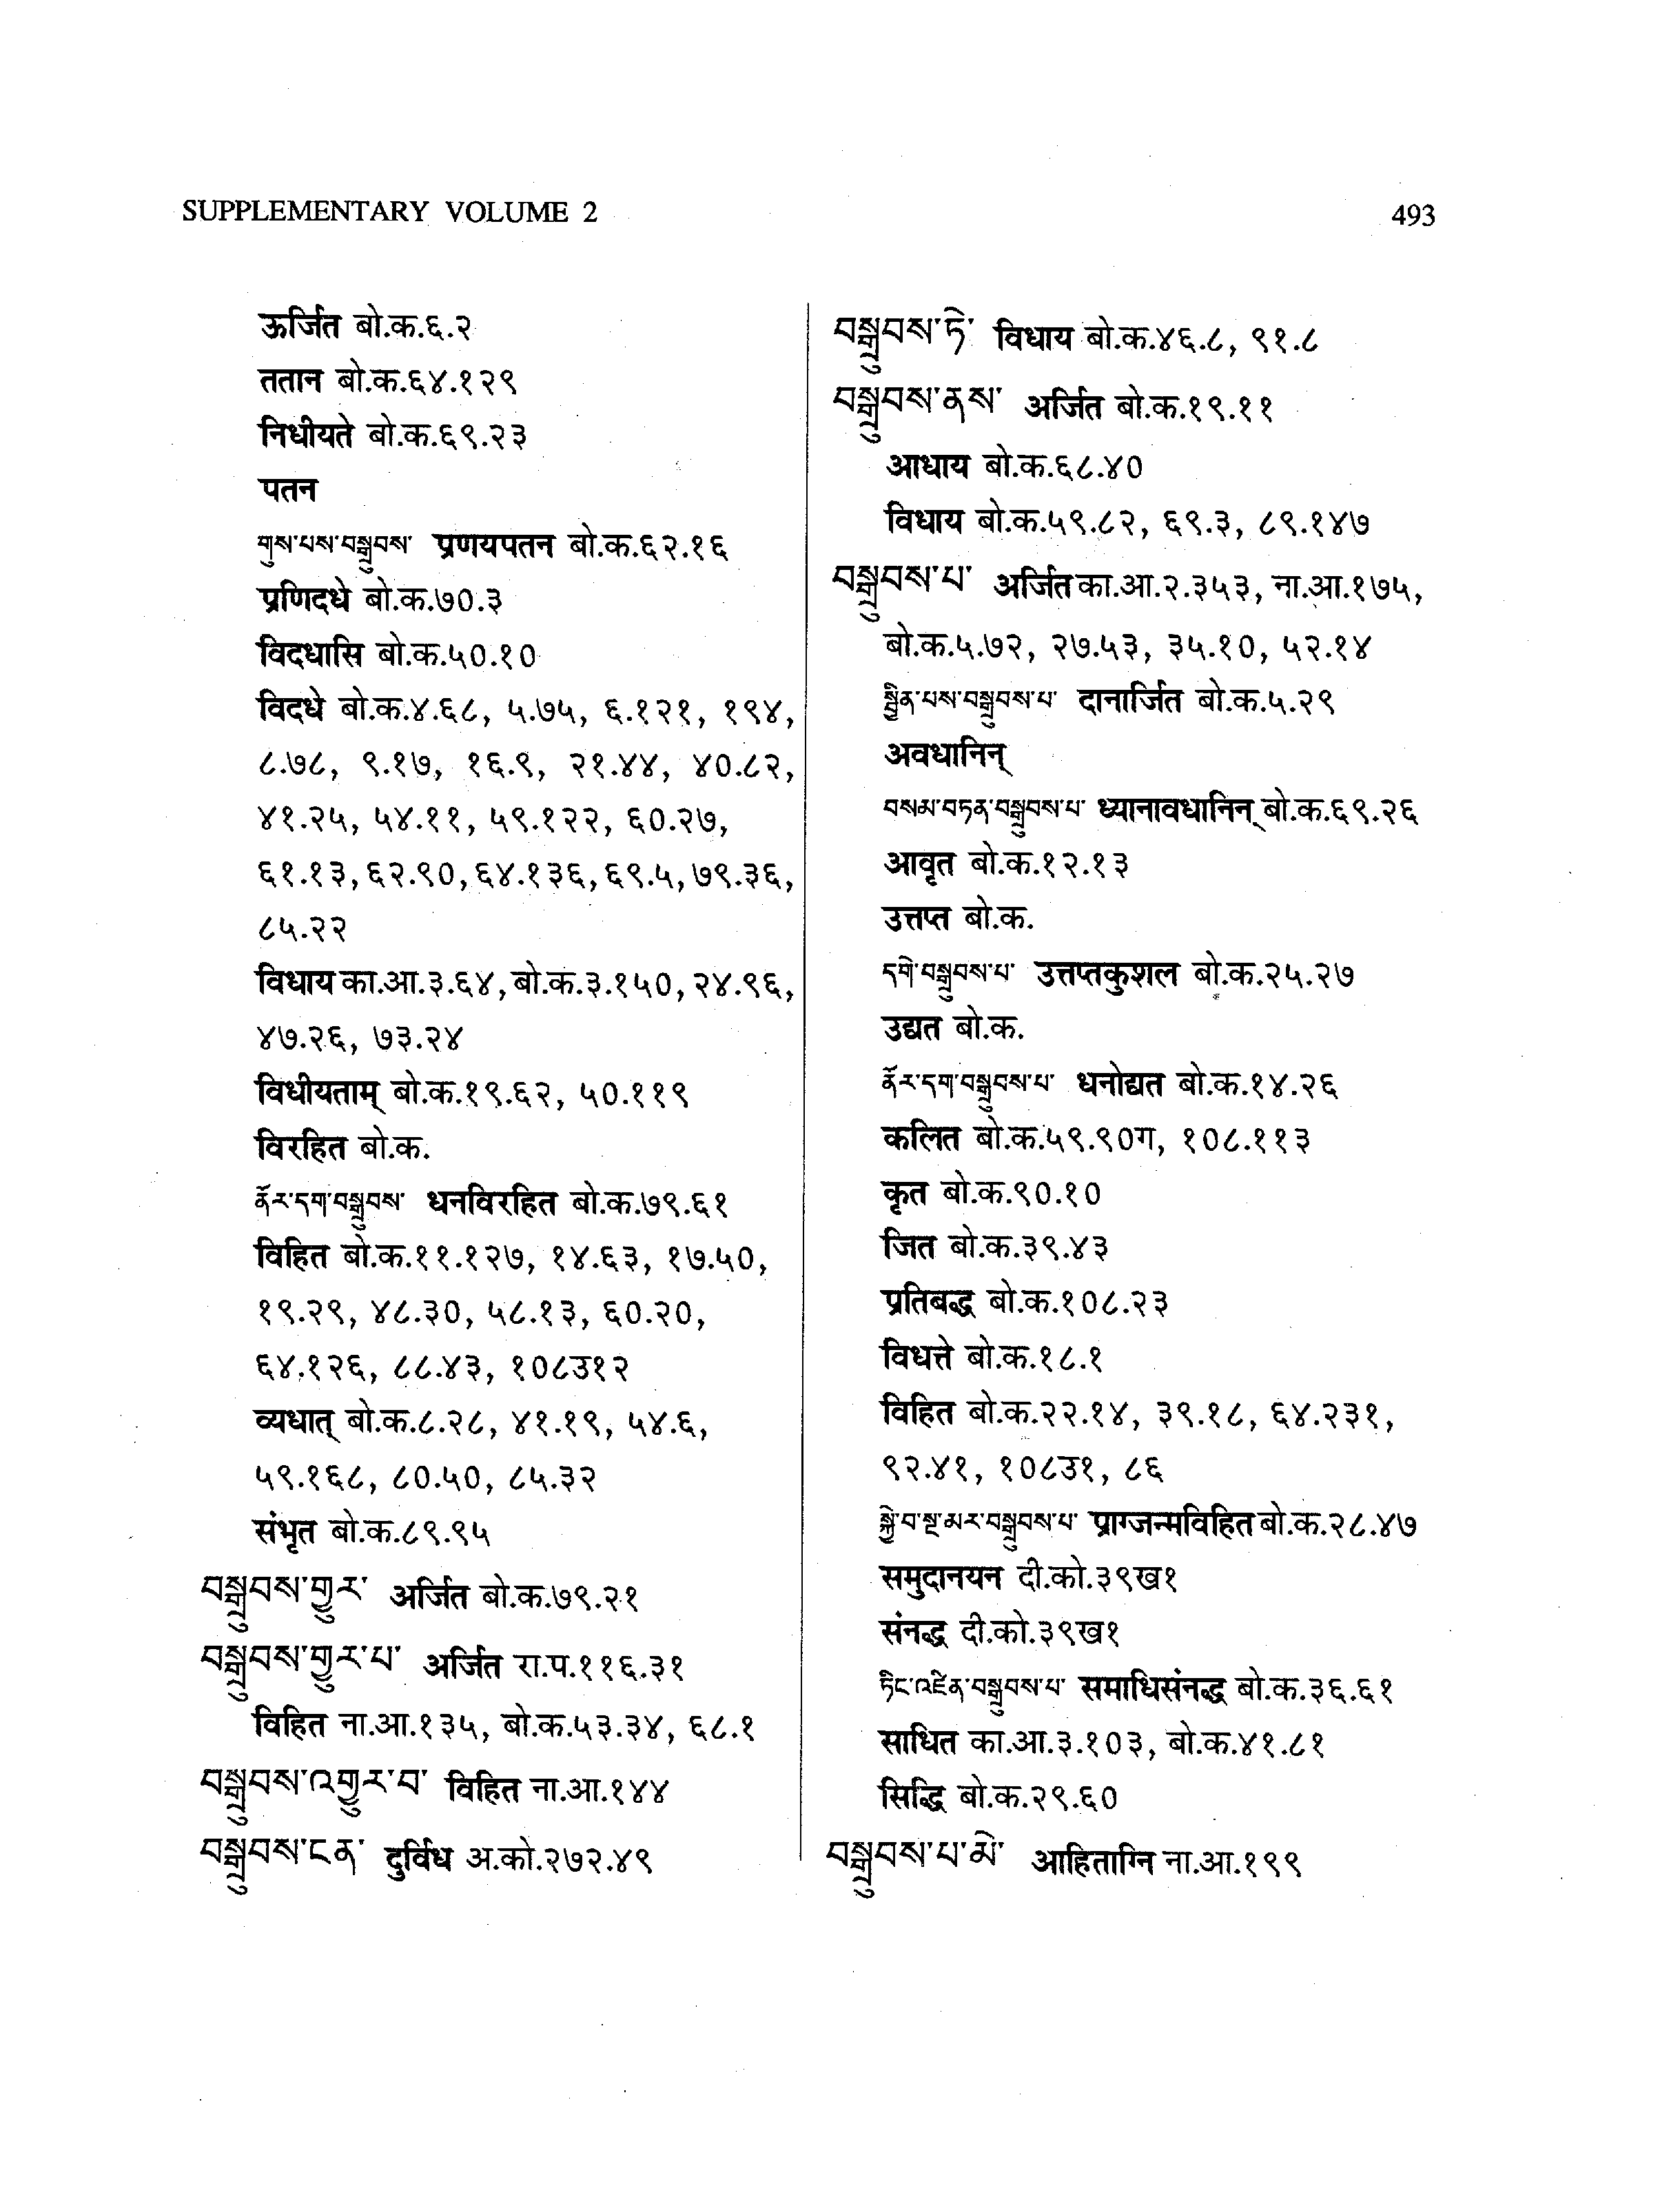 SUPPLEMENTARY VOLUME 2
493
ऊर्जित बो.क.६.२
ततान बो.क.६४.१२९
निधीयते बो.क.६९.२३
पतन
གུས་པས་བསྒྲུབས་ प्रणयपतन बो.क.६२.१६
प्रणिदधे बो.क.७०.३
विदधासि बो.क.५०.१०
विदधे बो.क.४.६८, ५.७५, ६.१२१, १९४,
८.७८, ९.१७, १६.९, २१.४४, ४०.८२,
४१.२५, ५४.११, ५९.१२२, ६०.२७,
६१.१३, ६२.९०, ६४.१३६, ६९.५, ७९.३६,
८५.२२
विधाय का.आ.३.६४, बो.क.३.१५०, २४.९६,
४७.२६, ७३.२४
विधीयताम् बो.क.१९.६२, ५०.११९
विरहित बो.क.
ནོར་དག་བསྒྲུབས་ धनविरहित बो.क.७९.६१
विहित बो.क.११.१२७, १४.६३, १७.५०,
१९.२९, ४८.३०, ५८.१३, ६०.२०,
६४.१२६, ८८.४३, १०८उ१२
व्यधात् बो.क.८.२८, ४१.१९, ५४.६,
५९.१६८, ८०.५०, ८५.३२
संभृत बो.क.८९.९५
བསྒྲུབས་གྱུར་ अर्जित बो.क.७९.२१
བསྒྲུབས་གྱུར་པ་ अर्जित रा.प.११६.३१
विहित ना.आ.१३५, बो.क.५३.३४, ६८.१
བསྒྲུབས་འགྱུར་བ་ विहित ना.आ.१४४
བསྒྲུབས་ངན་ दुर्विध अ.को.२७२.४९
བསྒྲུབས་ཏེ་ विधाय बो.क.४६.८, ९१.८
བསྒྲུབས་ནས་ अर्जित बो.क.१९.११
आधाय बो.क.६८.४०
विधाय बो.क.५९.८२, ६९.३, ८९.१४७
བསྒྲུབས་པ་ अर्जित का.आ.२.३५३, ना.आ.१७५,
बो.क.५.७२, २७.५३, ३५.१०, ५२.१४
སྦྱིན་པས་བསྒྲུབས་པ་ दानार्जित बो.क.५.२९
अवधानिन्
བསམ་བཏན་བསྒྲུབས་པ་ ध्यानावधानिन् बो.क.६९.२६
आवृत बो.क.१२.१३
उत्तप्त बो.क.
དགེ་བསྒྲུབས་པ་ उत्तप्तकुशल बो.क.२५.२७
उद्यत बो.क.
ནོར་དག་བསྒྲུབས་པ་ धनोद्यत बो.क.१४.२६
कलित बो.क.५९.९०ग, १०८.११३
कृत बो.क.९०.१०
जित बो.क.३९.४३
प्रतिबद्ध बो.क.१०८.२३
विधत्ते बो.क.१८.१
विहित बो.क.२२.१४, ३९.१८, ६४.२३१,
९२.४१, १०८उ१, ८६
སྐྱེ་བ་སྔ་མར་བསྒྲུབས་པ་ प्राग्जन्मविहित बो.क.२८.४७
समुदानयन दी.को.३९ख१
संनद्ध दी.को.३९ख१
ཏིང་འཛིན་བསྒྲུབས་པ་ समाधिसंनद्ध बो.क.३६.६१
साधित का.आ.३.१०३, बो.क.४१.८१
सिद्धि बो.क.२९.६०
བསྒྲུབས་པ་མེ་ आहिताग्नि ना.आ.१९९